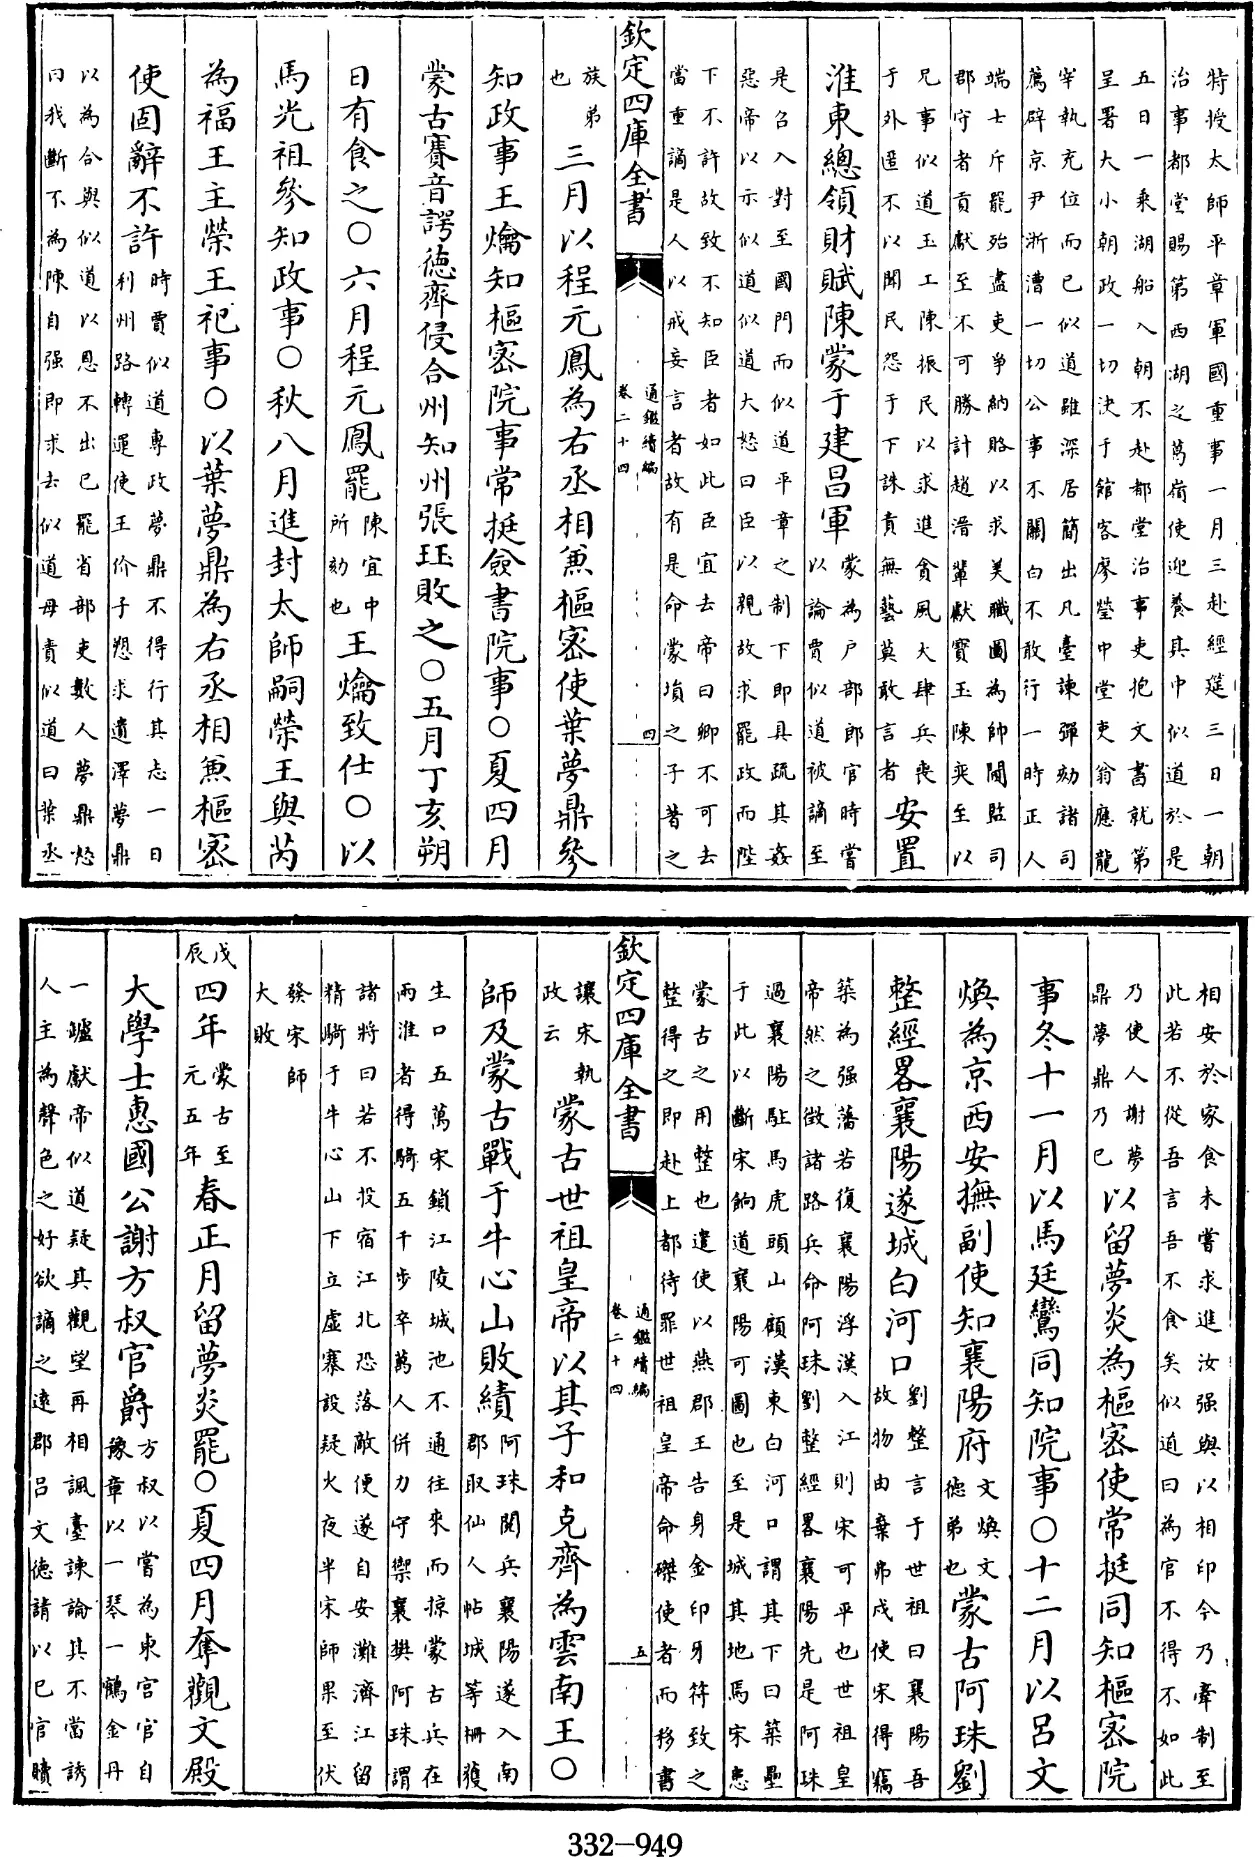 特授太師平章軍國重事一月三赴經筵三日一朝
治事都堂賜第西湖之葛嶺使迎養其中似道於是
五日一乘湖船入朝不赴都堂治事吏抱文書就第
呈署大小朝政一切決于館客廖瑩中堂吏翁應龍
宰執充位而已似道雖深居簡出凡臺諫彈劾諸司
薦辟京尹浙漕一切公事不關白不敢行一時正人
端士斥罷殆盡吏爭納賂以求美職圖為帥閫監司
郡守者貢獻至不可勝計趙溍輩獻寳玉陳奕至以
兄事似道玉工陳振民以求進貪風大肆兵喪
于外匿不以聞民怨于下誅責無藝莫敢言者
安置
淮東總領財賦陳蒙于建昌軍
蒙為戶部郎官時嘗
以論賈似道被謫至
是召入對至國門而似道平章之制下即具疏其姦
惡帝以示似道似道大怒曰臣以親故求罷政而陛
下不許故致不知臣者如此臣宜去帝曰卿不可去
當重謫是人以戒妄言者故有是命蒙塤之子著之
欽定四庫全書
通鑑續編
卷二十四
四
族弟
也
三月以程元鳳為右丞相兼樞密使葉夢鼎參
知政事王爚知樞密院事常挺僉書院事○夏四月
蒙古賽音諤德齊侵合州知州張珏敗之○五月丁亥朔
日有食之○六月程元鳳罷
陳宜中
所劾也
王爚致仕○以
馬光祖參知政事○秋八月進封太師嗣榮王與芮
為福王主榮王祀事○以葉夢鼎為右丞相兼樞密
使固辭不許
時賈似道專政夢鼎不得行其志一日
利州路轉運使王价子愬求遺澤夢鼎
以為合與似道以恩不出已罷省部吏數人夢鼎怒
曰我斷不為陳自强即求去似道母責似道曰葉丞
相安於家食未嘗求進汝强與以相印今乃牽制至
此若不從吾言吾不食矣似道曰為官不得不如此
乃使人謝夢
鼎夢鼎乃已
以留夢炎為樞密使常挺同知樞密院
事冬十一月以馬廷鸞同知院事○十二月以呂文
煥為京西安撫副使知襄陽府
文煥文
德弟也
蒙古阿珠劉
整經畧襄陽遂城白河口
劉整言于世祖曰襄陽吾
故物由棄弗戍使宋得竊
築為强藩若復襄陽浮漢入江則宋可平也世祖皇
帝然之徴諸路兵命阿珠劉整經畧襄陽先是阿珠
過襄陽駐馬虎頭山顧漢東白河口謂其下曰築壘
于此以斷宋餉道襄陽可圖也至是城其地馬宋患
蒙古之用整也遣使以燕郡王告身金印牙符致之
整得之即赴上都待罪世祖皇帝命磔使者而移書
欽定四庫全書
通鑑續編
卷二十四
五
讓宋執
政云
蒙古世祖皇帝以其子和克齊為雲南王○
師及蒙古戰于牛心山敗績
阿珠閱兵襄陽遂入南
郡取仙人帖城等柵獲
生口五萬宋鎖江陵城池不通往來而掠蒙古兵在
兩淮者得騎五千步卒萬人併力守禦襄樊阿珠謂
諸將曰若不投宿江北恐落敵便遂自安灘濟江留
精騎于牛心山下立虛寨設疑火夜半宋師果至伏
發宋師
大敗
戊
辰
四年
蒙古至
元五年
春正月留夢炎罷○夏四月奪觀文殿
大學士惠國公謝方叔官爵
方叔以嘗為東宮官自
豫章以一琴一鶴金丹
一爐獻帝似道疑其觀望再相諷臺諫論其不當誘
人主為聲色之好欲謫之遠郡呂文德請以已官贖
332-949